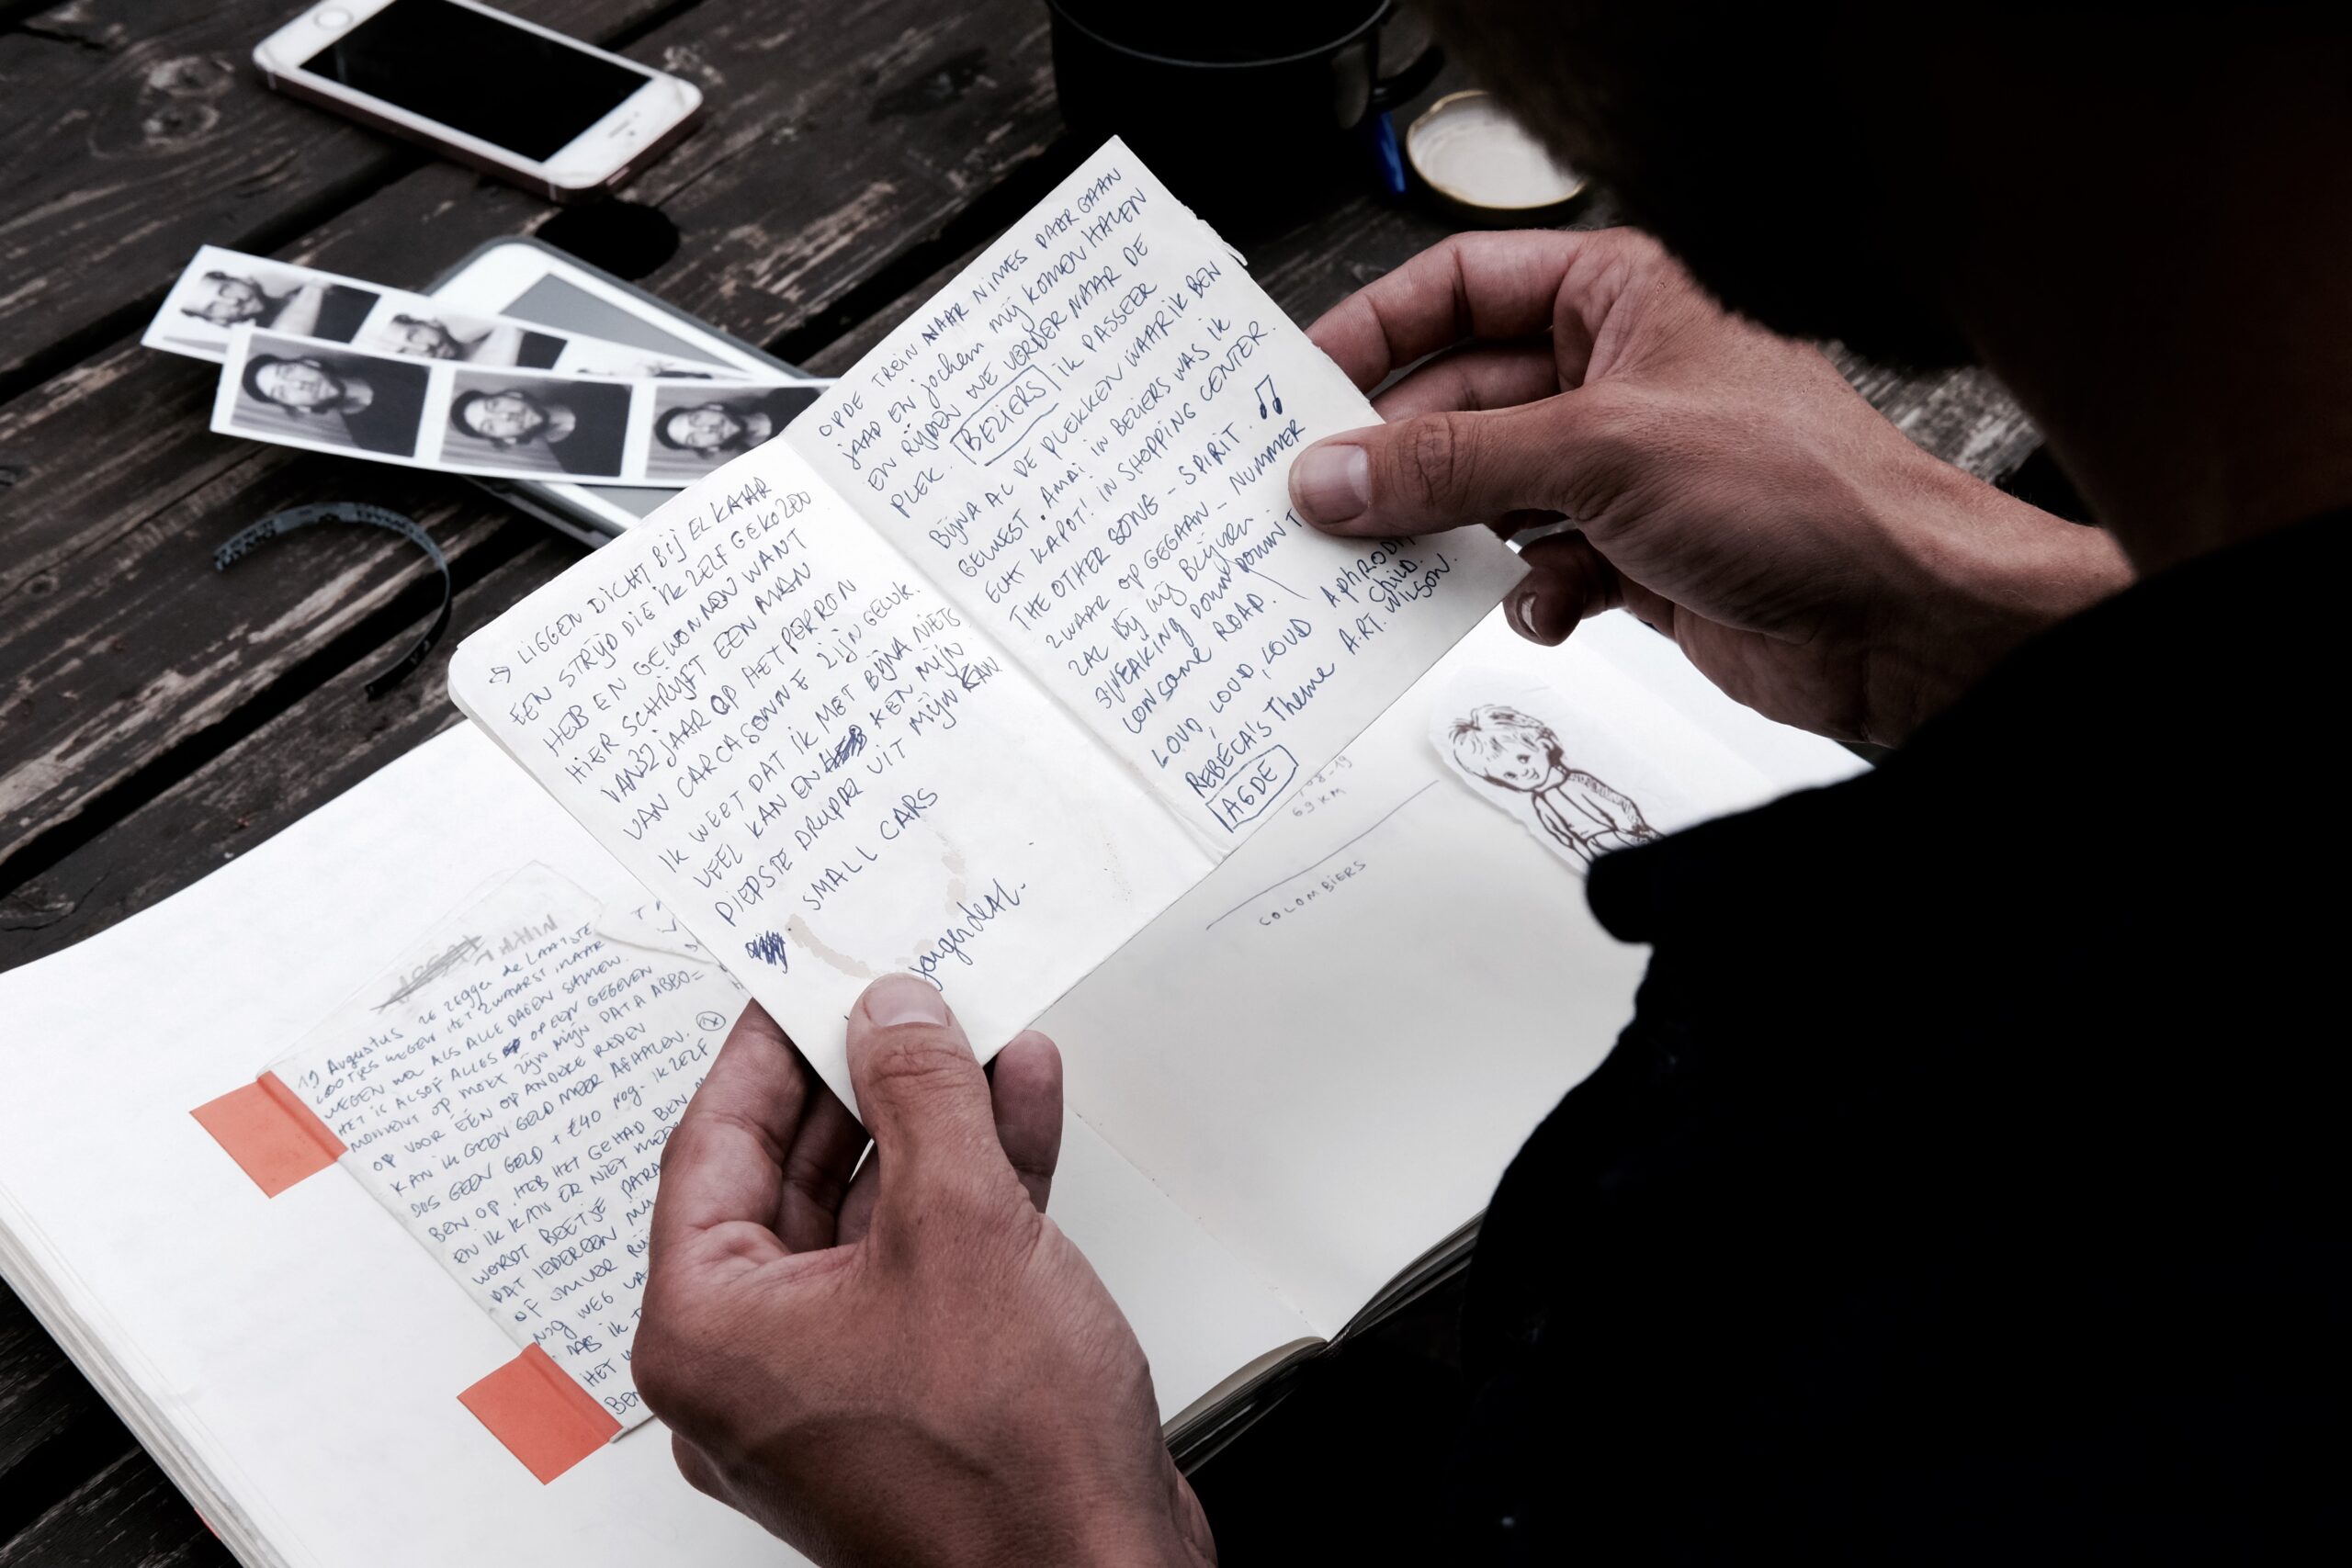 → LIGGEN DICHT BIJ ELKAAR
EEN STRIJD DIE IK ZELF GEKOZEN
HEB EN GEWONNEN WANT
HIER SCHRIJFT EEN MAN
VAN 32 JAAR OP HET PERRON
VAN CARCASONNE ZIJN GELUK.
IK WEET DAT IK MET BIJNA NIETS
VEEL KAN EN KEN MIJN
DIEPSTE DRUPPEL UIT MIJN KAN
SMALL CARS
OP DE TREIN NAAR NIMES DAAR GAAN
JAAP EN JOCHEM MIJ KOMEN HALEN
EN RIJDEN WE VERDER NAAR DE
PLEK. BEZIERS IK PASSEER
BIJNA AL DE PLEKKEN WAAR IK BEN
GEWEEST. AMAI IN BEZIERS WAS IK
ECHT KAPOT! IN SHOPPING CENTER.
THE OTHER SONG - SPIRIT. ♫
ZWAAR OP GEGAAN - NUMMER
ZAL BIJ MIJ BLIJVEN
DOWN DOWN
LONESOME ROAD.
LOUD, LOUD, LOUD
CHILD.
REBECA'S Theme A.R.T. WILSON.
AGDE
-08-19
69 KM
COLOMBIERS
19 Augustus te zeggen de LAATSTE
LOOTJES WEGEN HET ZWAARST MAAR
WEGEN ALS ALLE DAGEN SAMEN.
HET IS ALSOF ALLES OP EEN GEGEVEN
MOMENT OP MOET ZIJN MIJN DATA ABBO=
OP VOOR ÉÉN OF ANDERE REDEN
KAN IK GEEN GELD MEER AFHALEN.
DUS GEEN GELD + €40 NOG. IK ZELF
BEN OP. HEB HET GEHAD BEN
EN IK KAN ER NIET MEER
WORDT BEETJE PARA
DAT IEDEREEN MIJ
OF
NOG WEG VA
ALS IK
HET
BEN